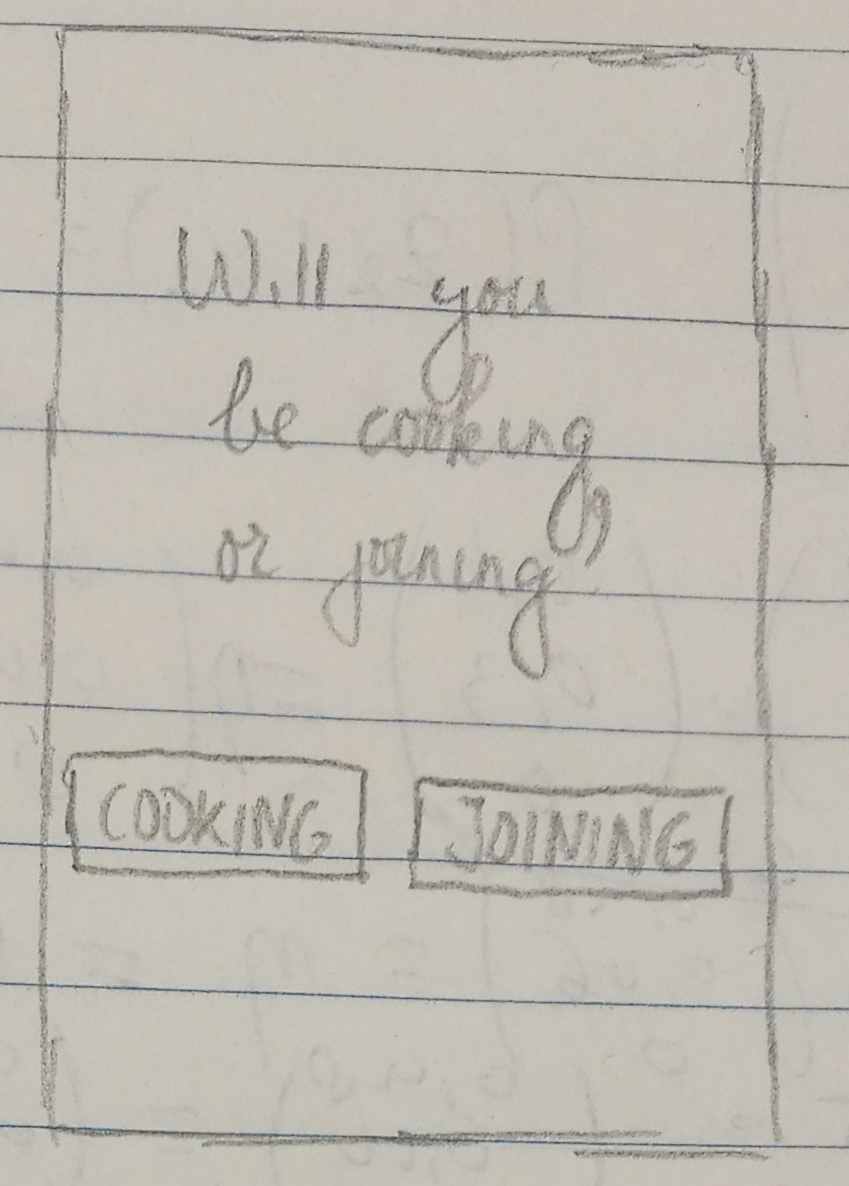 Will you
be cooking,
or joining
COOKING JOINING